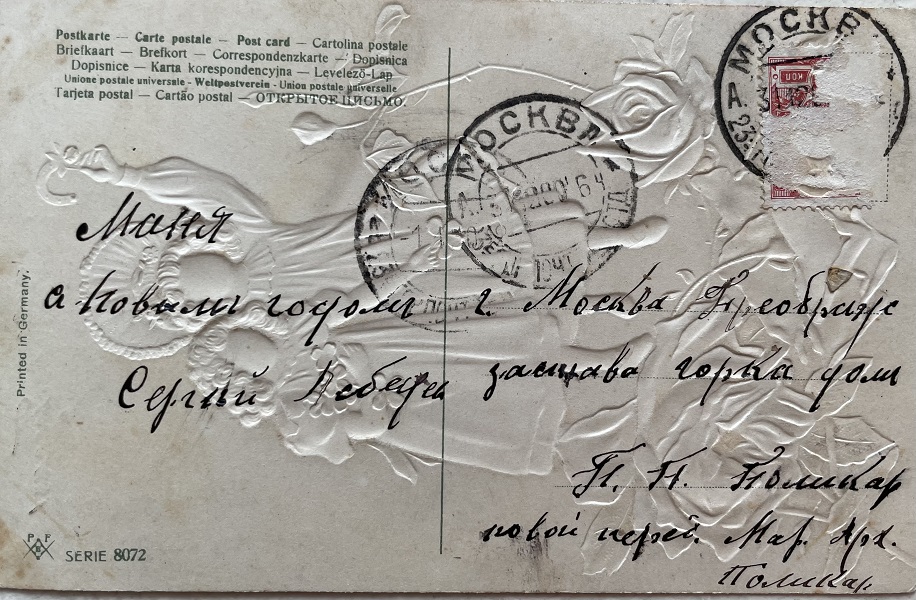 Postkarte — Carte postale — Post card — Cartolina postale
Briefkaart — Brefkort — Correspondenzkarte — Dopisnica
Dopisnice — Karta korespondencyjna — Levelező-Lap
Unione postale universale - Weltpostverein - Union postale universelle
Tarjeta postal — Cartão postal — ОТКРЫТОЕ ПИСЬМО.
МОСКВ
МОСКВА
Маня
с Новым годомъ
Сергей Лебедев
г. Москва Преображ
застава горка домъ
П. П. Поликар
новой перей. Мар. Арх.
Поликар
Printed in Germany.
PFB
SERIE 8072